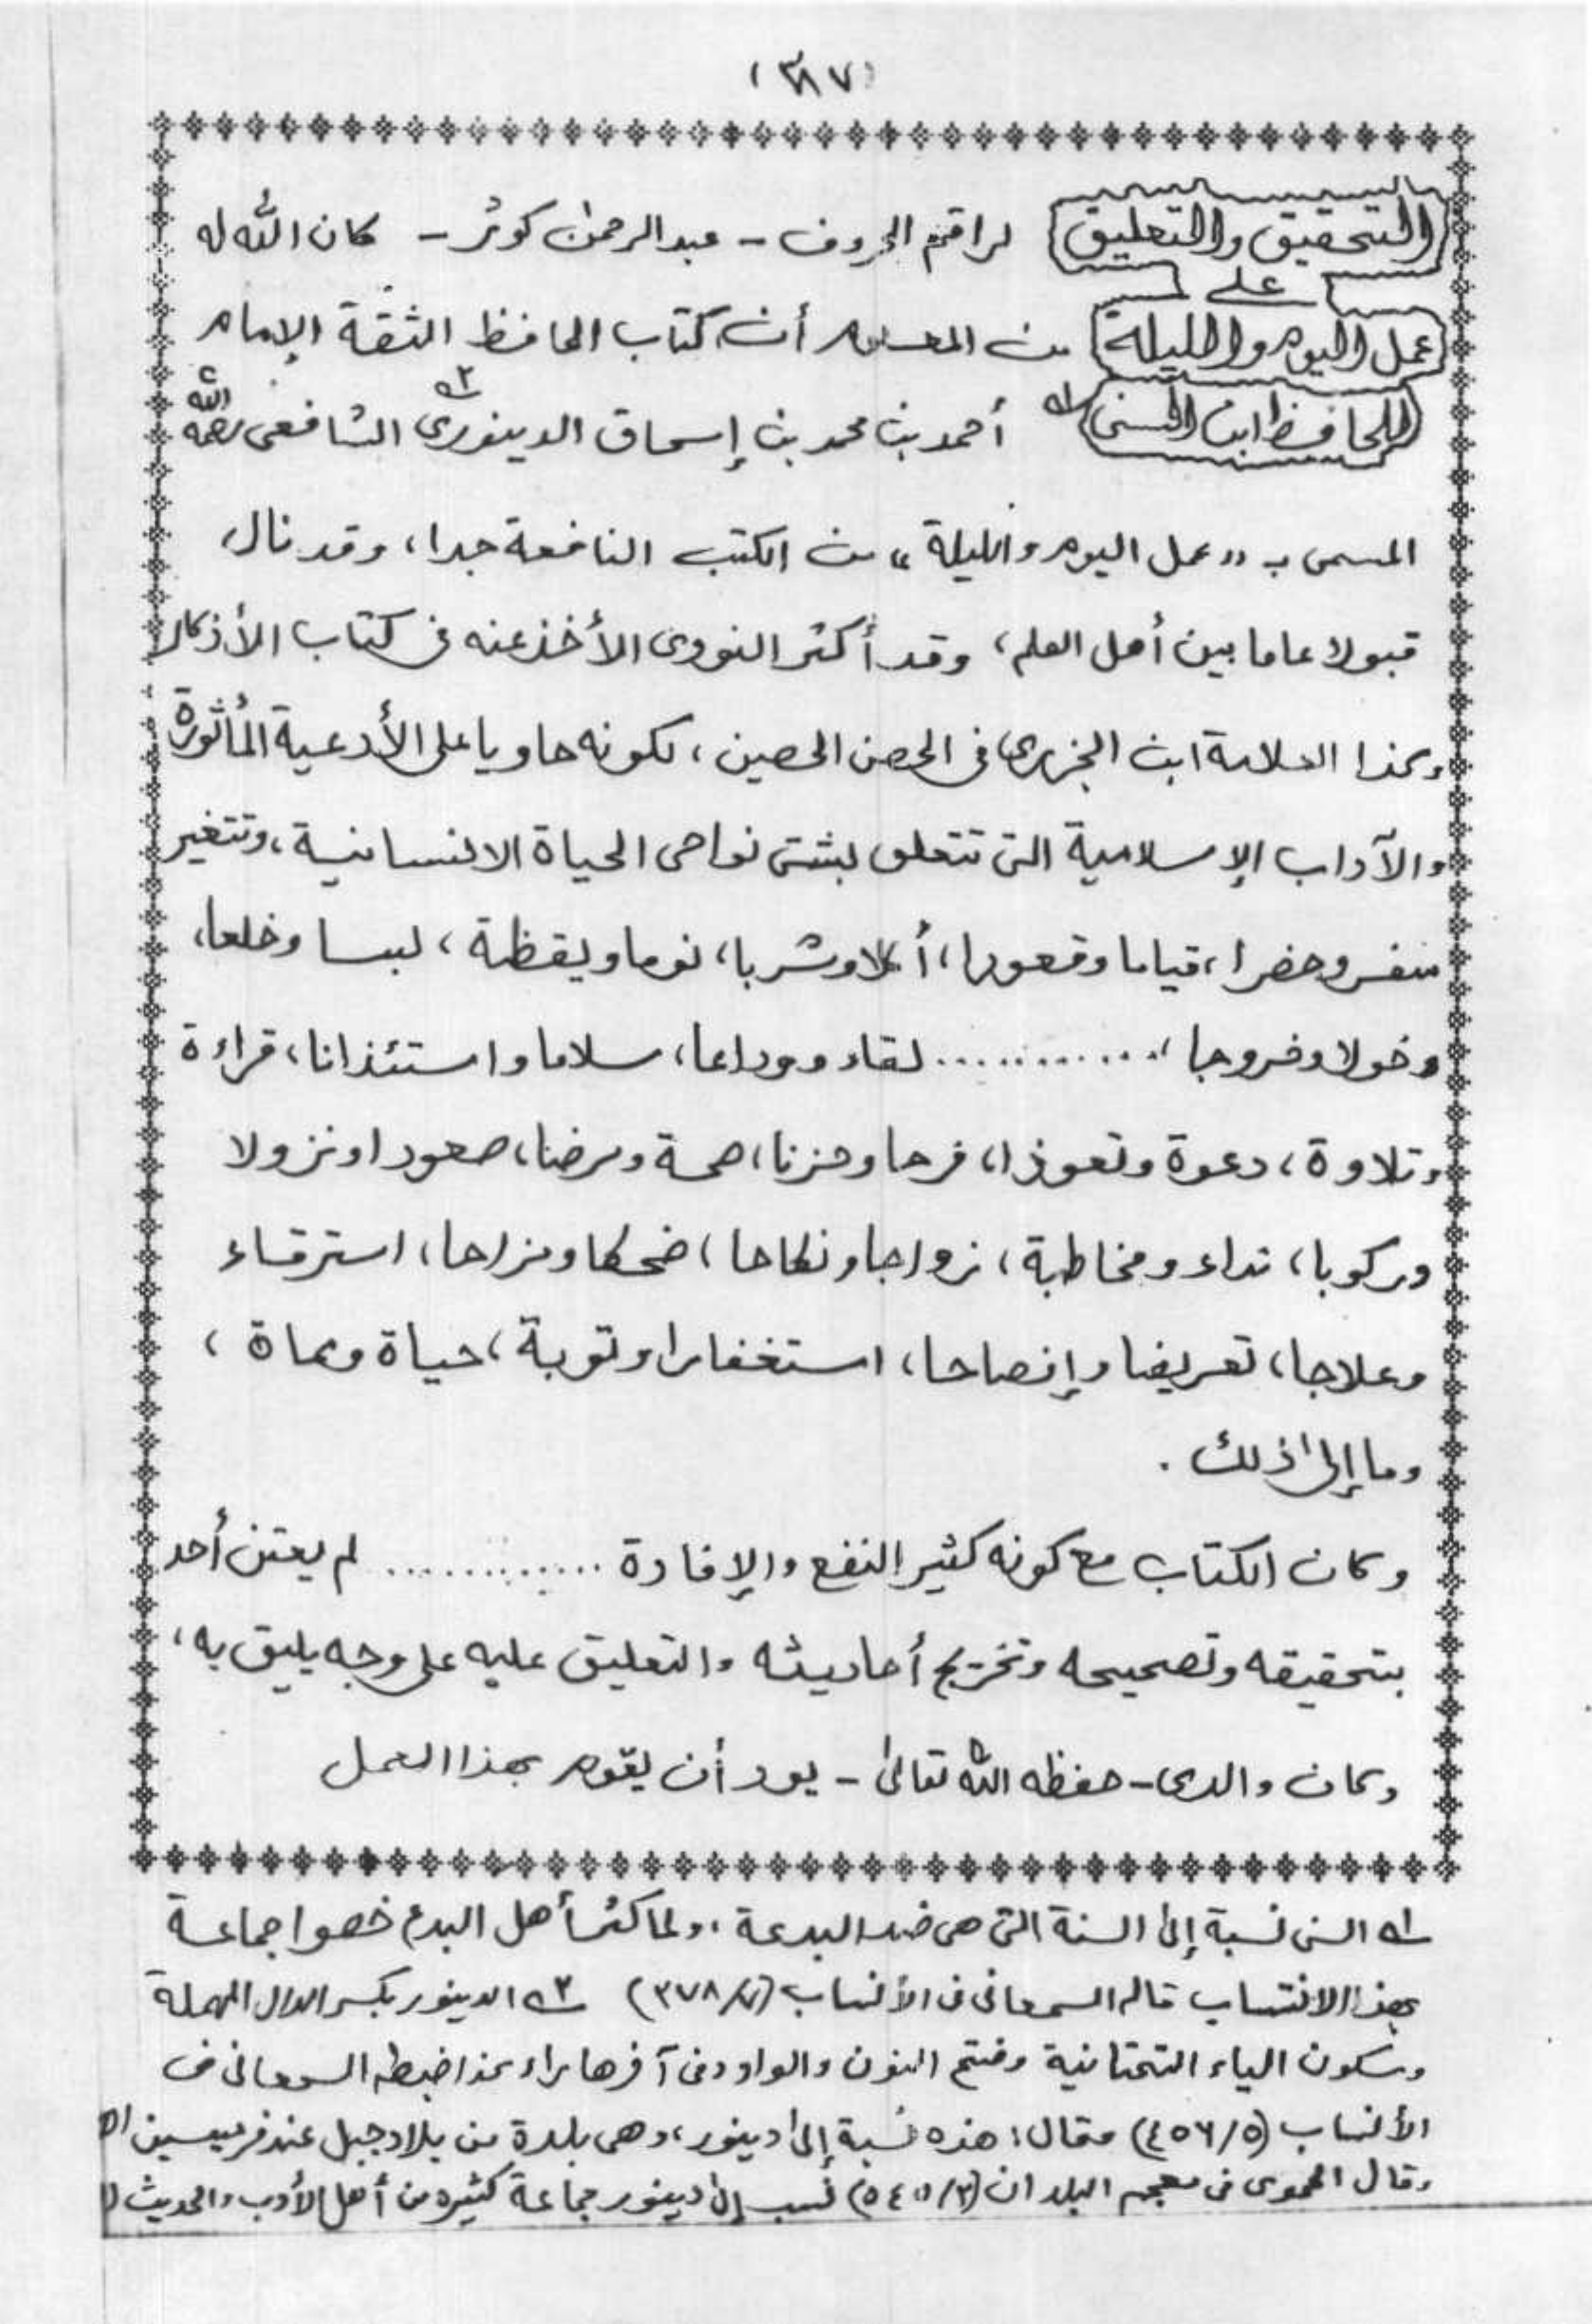 (٣٨٧)
التحقيق والتعليق لراقم الحروف - عبد الرحمٰن كوثر - كان الله له
على
عمل اليوم والليلة من المعلوم أن كتاب الحافظ الثقة الإمام
للحافظ ابن السنى ١ه أحمد بن محمد بن إسحاق الدينورى ٢ه الشافعى رحمه الله
المسمى بـ «عمل اليوم والليلة» من الكتب النافعة جدا، وقد نال
قبولا عاما بين أهل العلم، وقد أكثر النووى الأخذ عنه فى كتاب الأذكار
وكذا العلامة ابن الجزرى فى الحصن الحصين، لكونه حاويا على الأدعية المأثورة
والآداب الإسلامية التى تتعلق بشتى نواحى الحياة الانسانية، وتتغير
سفر وحضرا، قياما وقعودا، أكلا وشربا، نوما ويقظة، لبسا وخلعا،
دخولا وخروجا، ............ لقاء ووداعا، سلاما واستئذانا، قراءة
وتلاوة، دعوة وتعوذا، فرحا وحزنا، صحة ومرضا، صعودا ونزولا
وركوبا، نداء ومخاطبة، زواجا ونكاحا، ضحكا ومزاحا، استرقاء
وعلاجا، تعريضا وإفصاحا، استغفارا وتوبة، حياة ومماة،
وما إلى ذلك.
وكان الكتاب مع كونه كثير النفع والإفادة ............ لم يعتن أحد
بتحقيقه وتصحيحه وتخريج أحاديثه والتعليق عليه على وجه يليق به،
وكان والدى - حفظه الله تعالىٰ - يود أن يقوم بهذا العمل
١ه السنى نسبة إلى السنة التى هى ضد البدعة، ولما كثر أهل البدع خصوا جماعة
بهذا الانتساب قاله السمعانى فى الأنساب (٧/٣٧٨) ٢ه الدينور بكسر الدال المهملة
وسكون الياء التحتانية وفتح النون والواو وفى آخرها راء كذا ضبطه السمعانى فى
الأنساب (٥/٤٥٦) وقال: هذه نسبة إلى دينور، وهى بلدة من بلاد جبل عند قرميسين اه
وقال الحموى فى معجم البلدان (٢/٥٤٥) نسب إلى دينور جماعة كثيرة من أهل الأدب والحديث